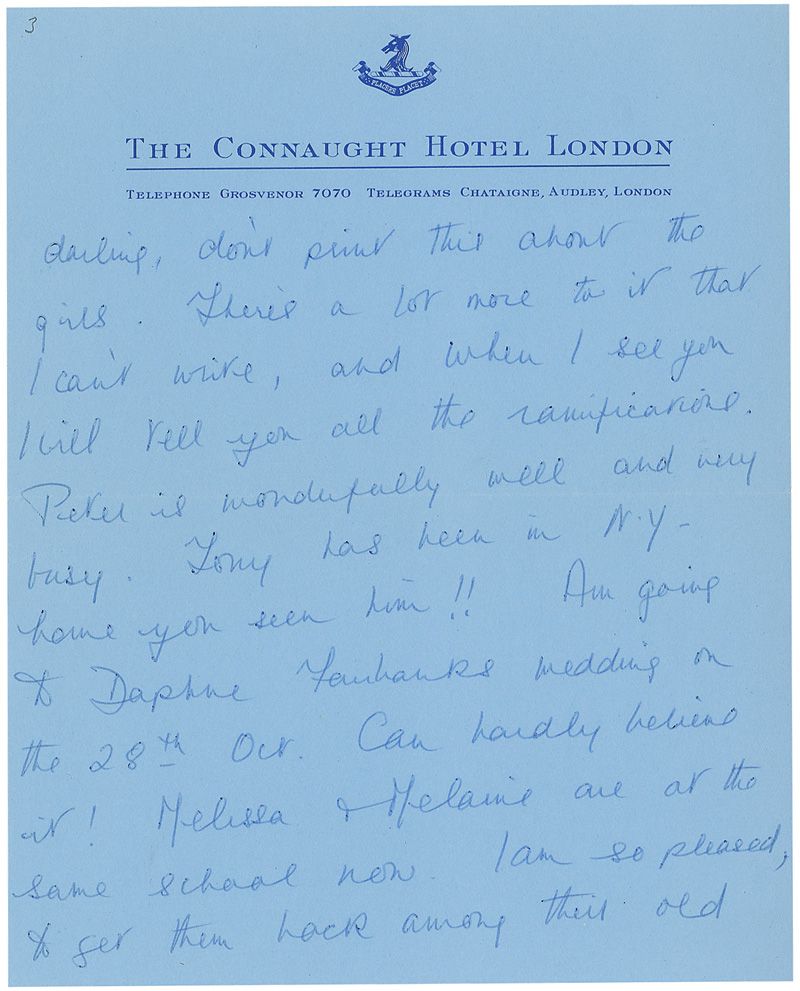 3
PLACERE PLACET
THE CONNAUGHT HOTEL LONDON
TELEPHONE GROSVENOR 7070 TELEGRAMS CHATAIGNE, AUDLEY, LONDON
darling, don't print this about the
girls. There's a lot more to it that
I can't write, and when I see you
I will tell you all the ramifications.
Peter is wonderfully well and very
busy. Tony has been in N.Y-
have you seen him!! Am going
to Daphne Fairbanks wedding on
the 28th Oct. Can hardly believe
it! Melissa & Melanie are at the
same school now. I am so pleased,
to get them back among their old